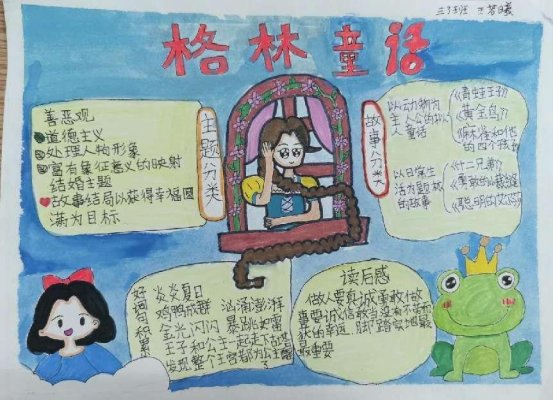 格林童话
善恶观
道德主义
处理人物形象
富有象征意义的映射
结婚主题
故事结局以获得幸福圆
满为目标
主题分类
故事分类
以动物为
主人公的拟人
童话
《青蛙王子》
《黄金鸟》
《麻雀和他
的四个孩
以日常生
活为题材
的故事
《十二兄弟》
《勇敢的裁缝
《聪明的
好词句积累
炎炎夏日
鸡鸭成群
汹涌澎湃
金光闪闪
暴跳如雷
王子和公主一起走下
发现整个王宫都为公主
读后感
做人要真诚勇敢做
事要诚信敢当没有不劳而
获的幸运 脚踏实地最
最重要